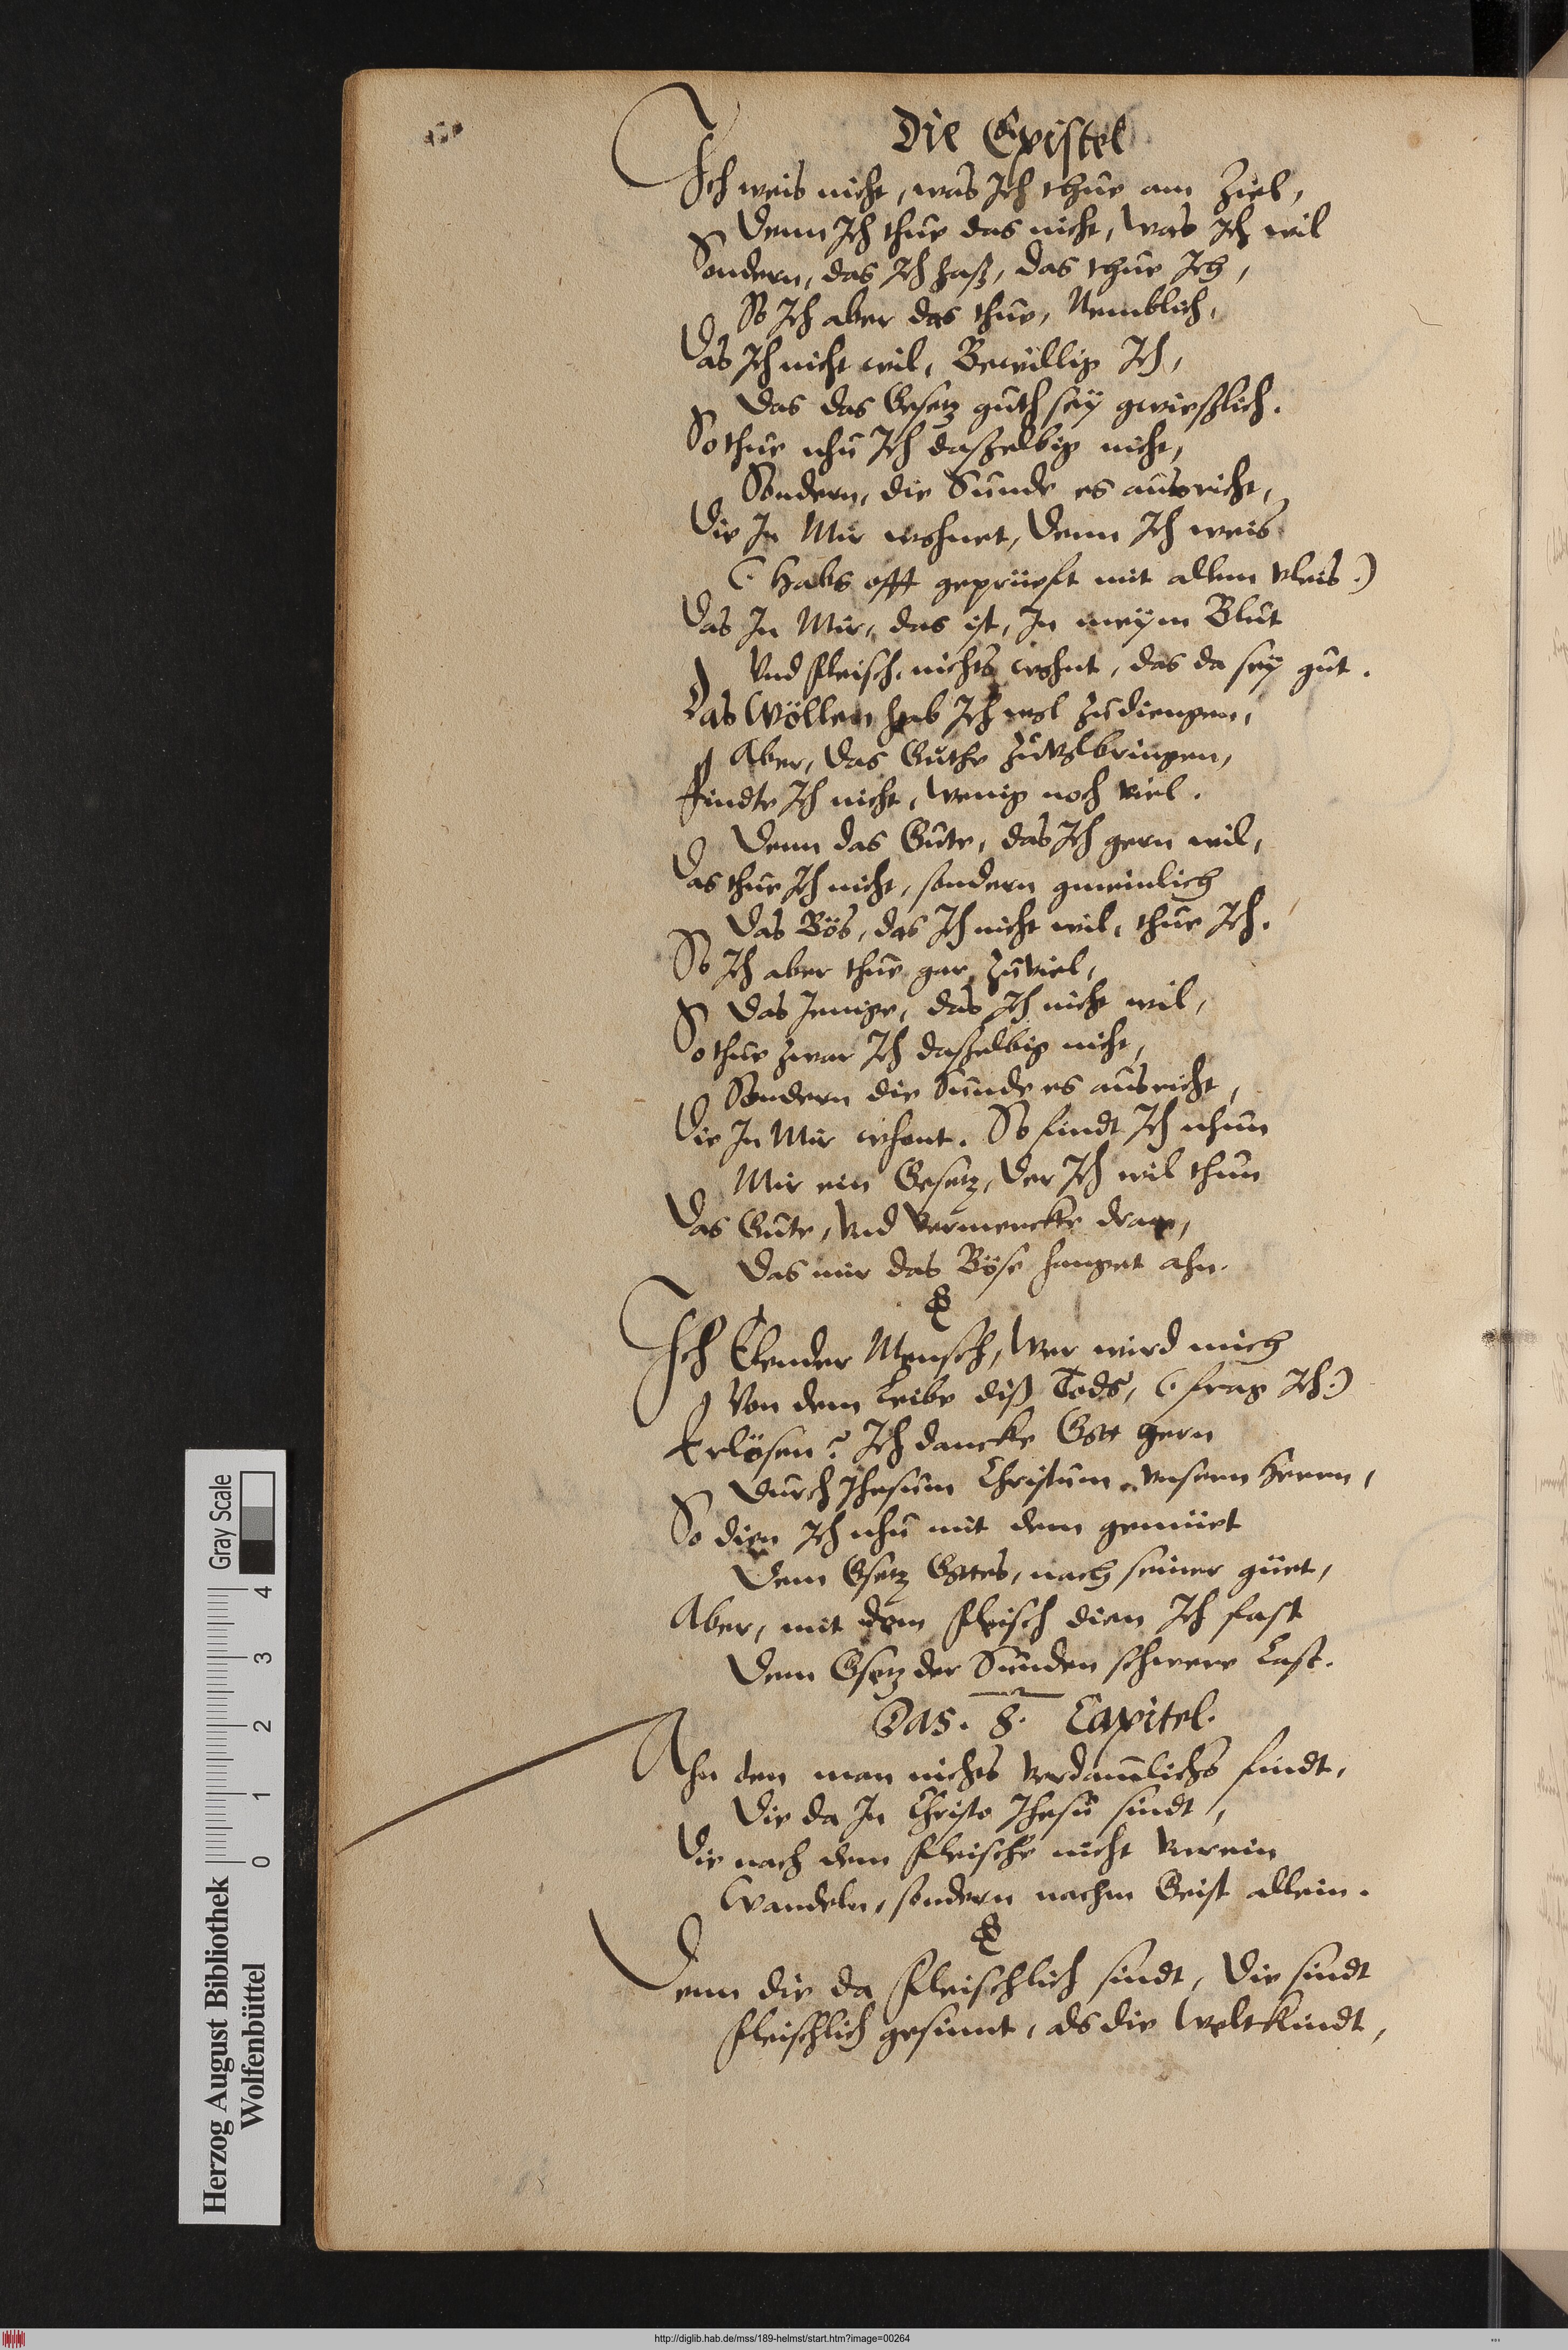 Die Epistel
Ich weis nicht, was Ich thue am Ziel,
Denn Ich thue das nicht, was Ich wil
Sondern, das Ich haß, das thue Ich,
So Ich aber das thue, Nemblich,
Das Ich nicht wil, Bewillig Ich,
Das das Gesetz guth sey gwießlich.
So thue nhu Ich daßelbig nicht,
Sondern, die Sunde es ausricht,
Die In Mir wohnet, Denn Ich weis
(: Habs offt geprüeft mit allem vleis :)
Das In Mir, das ist, In meym Blut
Vnd fleisch, nichts wohnt, das da sey gut.
Das Wöllen hab Ich wol zudiengen,
Aber, das Guthe zuvolbringen,
Findte Ich nicht, wenig noch viel.
Denn das Gute, das Ich gern wil,
Das thue Ich nicht, sondern gmeinlich
Das Bös, das Ich nicht wil, thue Ich.
So Ich aber thue gar zuviel,
Das Jenige, das Ich nicht wil,
So thue zwar Ich daßelbig nicht,
Sondern die Sunde es ausricht,
Die In Mir whont. So findt Ich nhun
Mir ein Gesetz, der Ich wil thun
Das Gute, Vnd vermercke dran,
Das mir das Böse hanget ahn.
Ich Elender Mensch, Wer wird mich
Von dem Leibe diß Tods, (: frag Ich :)
Erlösen? Ich dancke Gott gern
Durch Jhesum Christum vnsern Herrn,
So dien Ich nhu mit dem gemüet
Dem Gsetz Gottes, nach seiner güet,
Aber, mit dem fleisch dien Ich fast
Dem Gsetz der Sünden schwere Last.
Das. 8. Capitel.
Ahn den man nichts verdamlichs findt,
Die da In Christo Jhesu sindt,
Die nach dem fleische nicht vnrein
Wandeln, sondern nachm Geist allein.
Denn die da fleischlich sindt, Die sindt
fleischlich gesinnt, als die Weltkindt,
Herzog August Bibliothek
Wolfenbüttel
0 1 2 3 4
Gray Scale
http://diglib.hab.de/mss/189-helmst/start.htm?image=00264